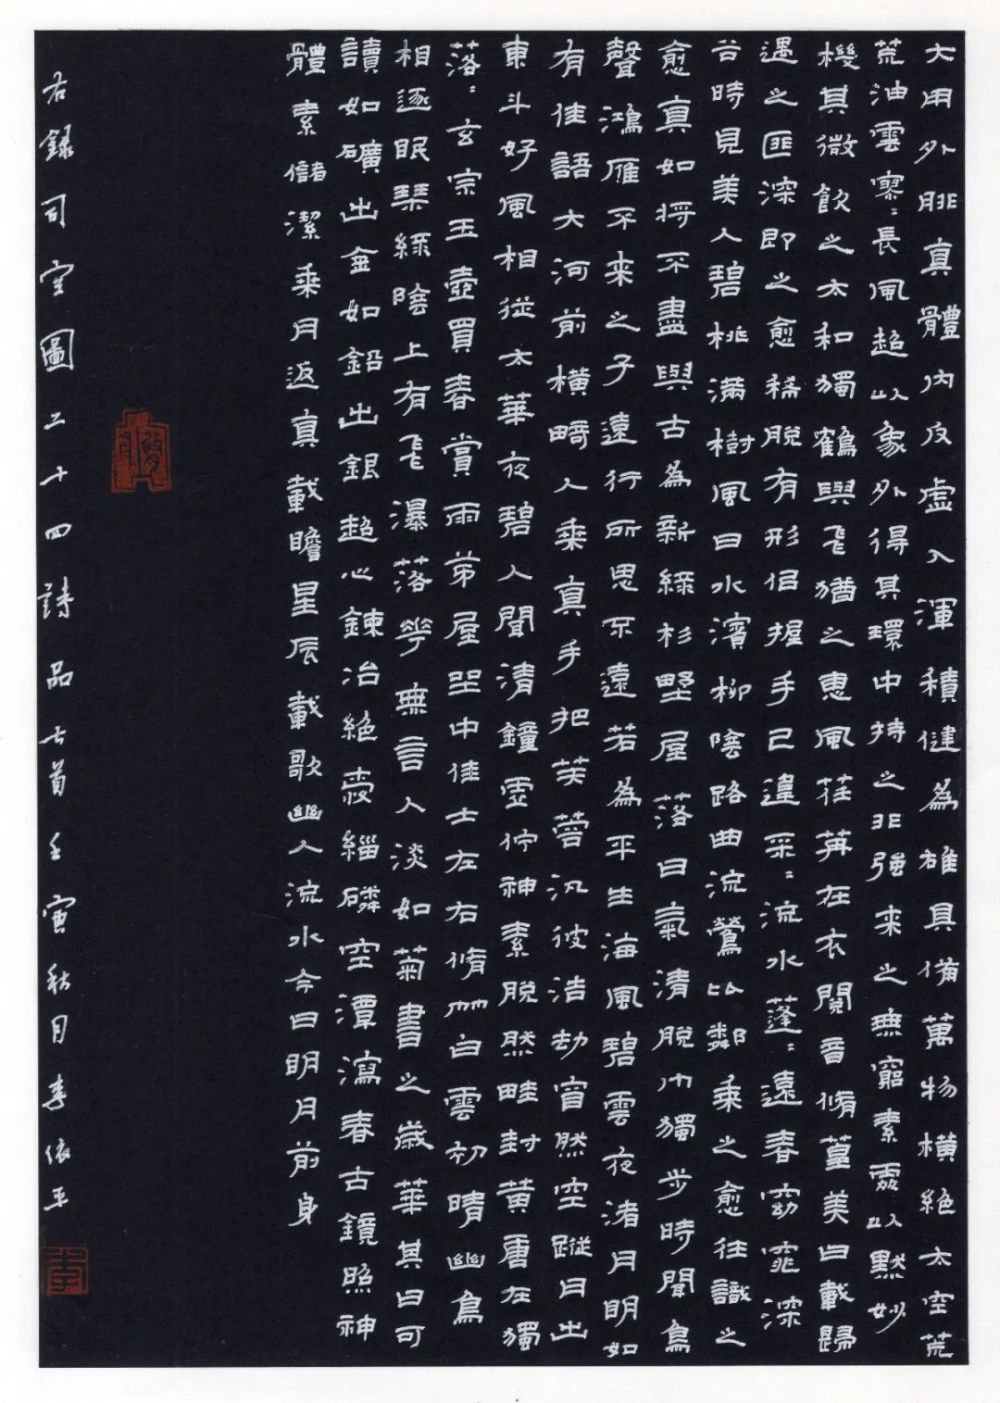 大用外腓真體內反虛入渾積健為雄具備萬物橫絕太空荒
荒油雲寥:長風超以象外得其環中持之非強來之無窮素處以默妙
機其微飲之太和獨鶴與飛猶之惠風荏苒在衣閱音脩篁美曰載歸
遇之匪深即之愈稀脫有形侣握手已違采:流水蓬:遠春窈窕深
谷時見美人碧桃滿樹風日水濱柳陰路曲流鶯比鄰乘之愈往識之
愈真如將不盡與古為新綠杉野屋落日氣清脫巾獨步時聞鳥
聲鴻雁不來之子遠行所思不遠若為平生海風碧雲夜渚月明如
有佳語大河前橫畸人乘真手把芙蓉汎彼浩劫窅然空蹤月出
東斗好風相從太華夜碧人聞清鐘虛佇神素脫然畦封黃唐在獨
落:玄宗玉壺買春賞雨茅屋坐中佳士左右脩竹白雲初晴幽鳥
相逐眠琴綠陰上有飛瀑落花無言人淡如菊書之歲華其曰可
讀如礦出金如鉛出銀超心鍊冶絕愛緇磷空潭瀉春古鏡照神
體素儲潔乘月返真載瞻星辰載歌幽人流水今日明月前身
右錄司空圖二十四詩品七首壬寅秋月李依
李